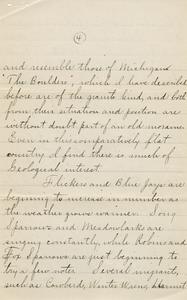 4
and resemble those of Michigan
"The Boulders", which I have described
before are of the granite kind, and both
from their situation and position are
without doubt part of an old moraine.
Even in this comparatively flat
country I find there is much of
Geological interest.
Flickers and Blue Jays are
beginning to increase in number as
the weather grows warmer. Song
Sparrows and Meadowlarks are
singing constantly, while Robins and
Fox Sparrows are just beginning to
try a few notes. Several migrants,
such as Cowbird, Winter Wren, Hermit